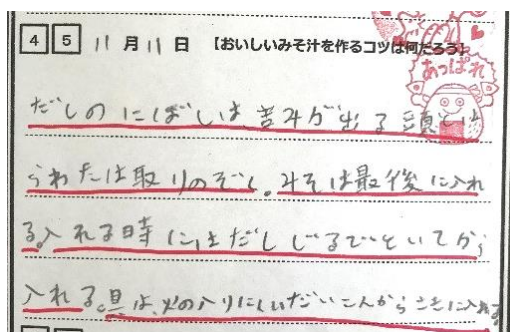 4 5 11月11日 【おいしいみそ汁を作るコツは何だろう】
あっぱれ
だしのにぼしは、苦みが出る頭とは
らわたは取りのぞく。みそは最後に入れ
る。入れる時にはだしじるでといてから
入れる。具は、火の入りにくいだいこんからさきに入れる